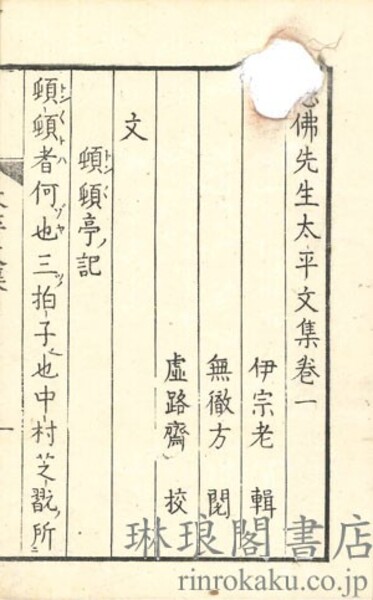 佛先生太平文集卷一
伊宗老 輯
無徹方 閲
虛路齋 校
文
頓頓亭ノ記
頓頓者何也三拍子也中村芝翫ノ所
琳琅閣書店
rinrokaku.co.jp